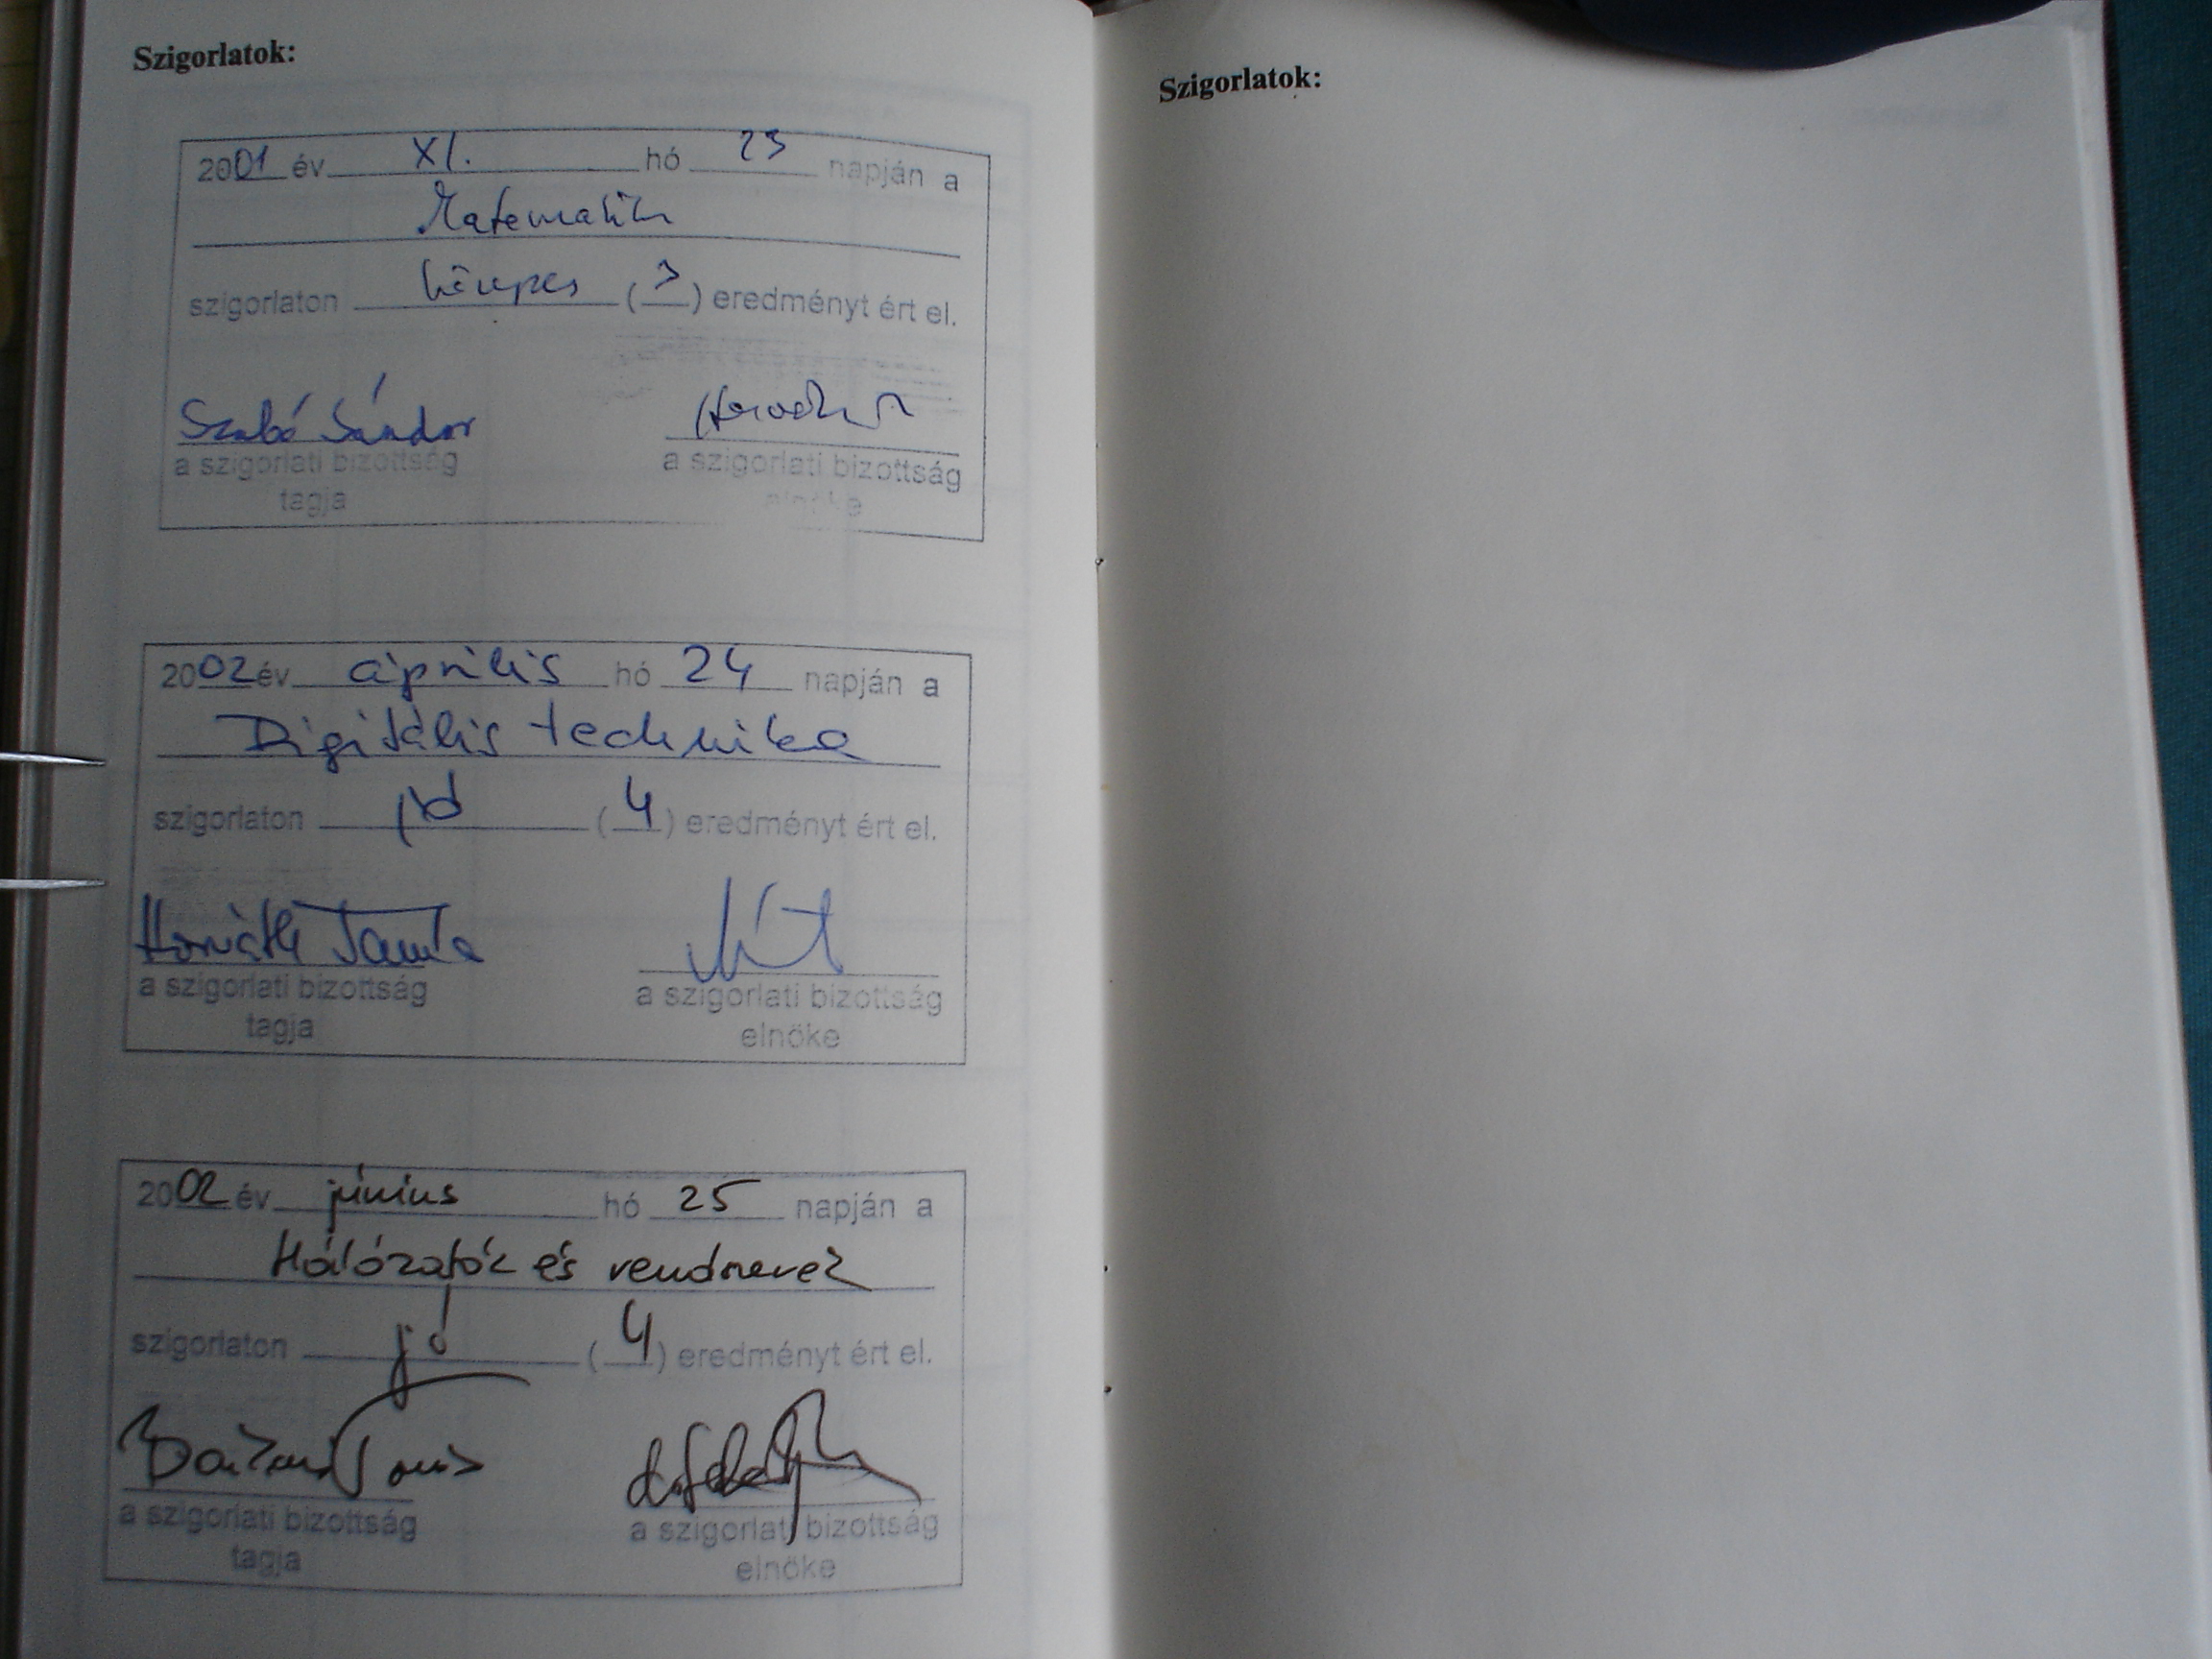 Szigorlatok:
2001 év XI. hó 23 napján a
Matematika
szigorlaton közepes (3) eredményt ért el.
Szabó Sándor
a szigorlati bizottság a szigorlati bizottság
tagja elnöke
2002 év április hó 24 napján a
Digitális technika
szigorlaton jó (4) eredményt ért el.
Horváth
a szigorlati bizottság a szigorlati bizottság
tagja elnöke
2002 év június hó 25 napján a
Hálózatok és rendszerek
szigorlaton jó (4) eredményt ért el.
a szigorlati bizottság a szigorlati bizottság
tagja elnöke
Szigorlatok: